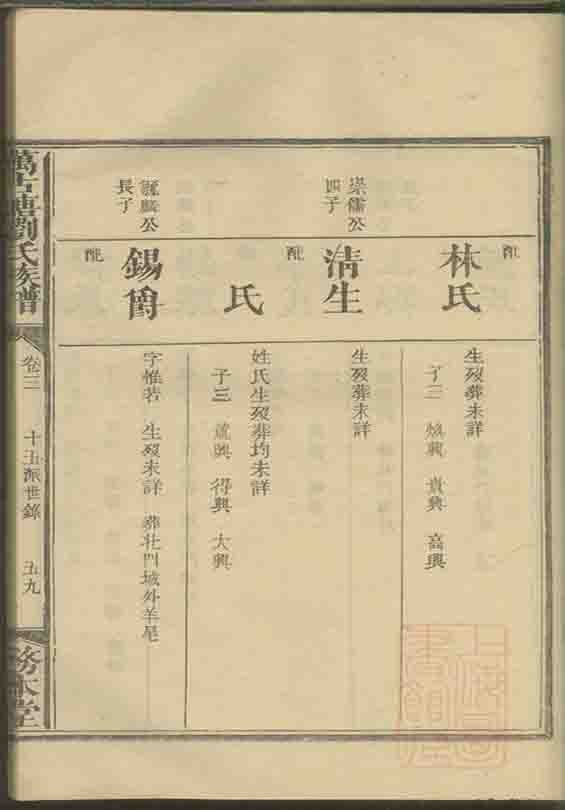 配
林氏
生歿葬未詳
子三 煥興 貴興 高興
崇儒公
四子
清生
生歿葬未詳
配
氏
姓氏生歿葬均未詳
子三 萬興 得興 大興
公
長子
錫爵
字惟若 生歿未詳 葬北門城外羊尾
配
萬古塘劉氏族譜
卷三
十五派世錄
五九
務本堂
上海圖書館藏